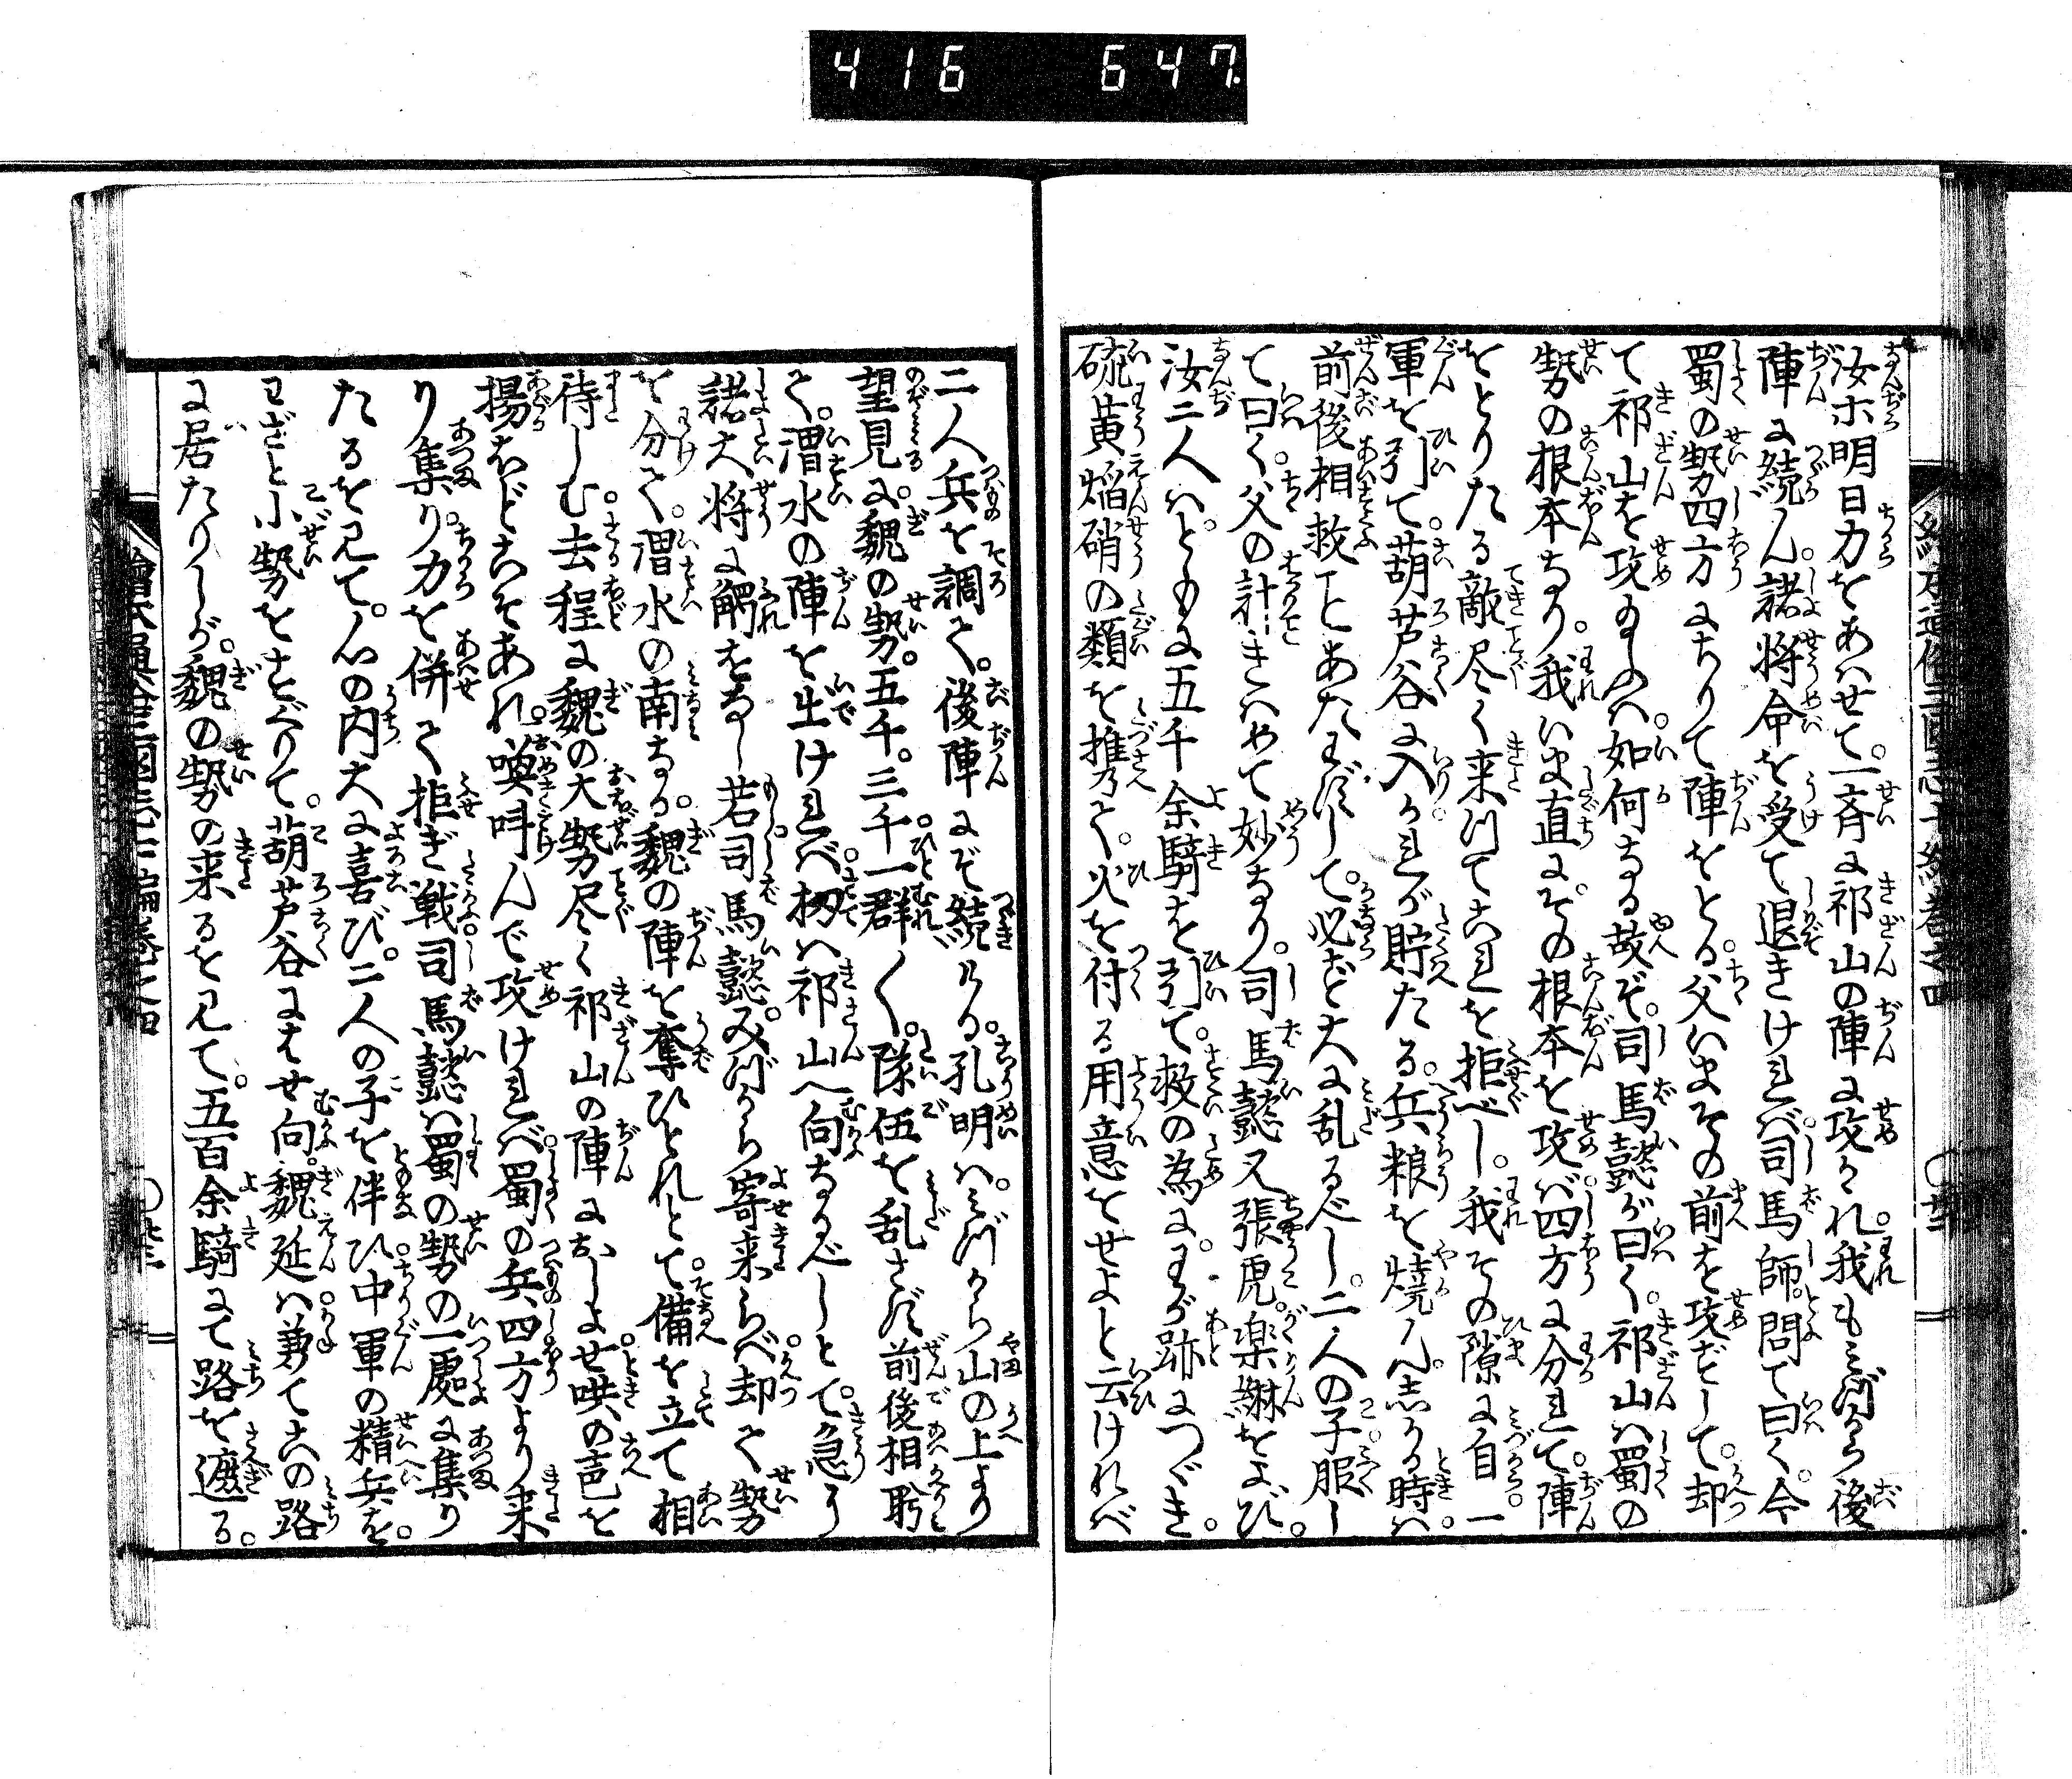 416 647.
汝ホ明日力をあはせて。一斉に祁山の陣に攻かれ。我もミづから後
陣に続ん。諸将命を受て退きけれバ。司馬師。問て曰く。今
蜀の勢四方にちりて陣をとる。父いまその前を攻ずして。却
て祁山を攻玉ふハ。如何なる故ぞ。司馬懿が曰く。祁山ハ蜀の
勢の根本なり。我いま直にその根本を攻バ。四方に分れて。陣
をとりたる敵尽く来ツてこれを拒べし。我その隙に自。一
軍を引て。葫芦谷に入。かれが貯たる。兵粮を焼ん。しかる時ハ。
前後相救ことあたわずして。必ず大に乱るべし。二人の子服し
て曰く。父の計きハめて妙なり。司馬懿又張虎。楽綝をよび。
汝二人ハ。ともに五千余騎を引て。救の為に。わが跡につゞき。
硫黄焔硝の類を携て。火を付る用意をせよと云けれバ
二人兵を調て。後陣にぞ続ける。孔明ハ。ミづから山の上より
望見に。魏の勢。五千。三千一群〳〵。隊伍を乱さず前後相盻
て。渭水の陣を出けれバ。扨ハ祁山へ向なるべしとて。急う
諸大将に觸をなし若司馬懿。みづから寄来らバ。却て勢
を分て。渭水の南なる。魏の陣を奪ひとれとて。備を立て相
待しむ。去程に魏の大勢尽く祁山の陣におしよせ。哄の声を
揚るほどこそあれ。喚叫んで攻けれバ。蜀の兵四方より来
り集り。力を併て拒ぎ戦。司馬懿ハ蜀の勢の一處に集り
たるを見て。心の内大に喜び。二人の子を伴ひ。中軍の精兵を。
わざと小勢をすぐりて。葫芦谷にはせ向。魏延ハ。兼てこの路
に居たりしが。魏の勢の来るを見て。五百余騎にて路を遮る。